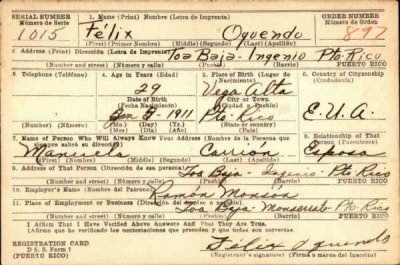 SERIAL NUMBER
Número de Serie
1015
1. Name (Print) Nombre (Letra de Imprenta)
Felix Oquendo
(First) (Primer Nombre) (Middle) (Segundo) (Last) (Apellido)
ORDER NUMBER
Número de Orden
892
2. Address (Print) Dirección (Letra de Imprenta)
Toa Baja - Ingenio Pto. Rico
(Number) (Número) (Street) (Calle) (Town) (Pueblo) (Barrio) PUERTO RICO
3. Telephone (Teléfono)
4. Age in Years (Edad)
29
Date of Birth
(Fecha Nacimiento)
5 1911
(Mo.) (Day) (Yr.)
(Mes) (Día) (Año)
5. Place of Birth (Lugar de Nacimiento)
Vega Alta
City or Town
(Ciudad o Pueblo)
Pto. Rico
(State or country)
6. Country of Citizenship
(Ciudadanía)
E.U.A.
7. Name of Person Who Will Always Know Your Address (Nombre de la Persona que siempre sabrá su dirección)
Carrión
(First) (Nombre) (Middle) (Segundo) (Last) (Apellido)
8. Relationship of That Person (Parentesco)
Esposa
9. Address of That Person (Dirección de esa persona)
Toa Baja - Ingenio - Pto Rico
(Number) (Número) (Street) (Calle) (Town) (Pueblo) (Barrio) PUERTO RICO
10. Employer's Name (Nombre del Patrono)
Ramón
11. Place of Employment or Business (Dirección del empleo o negocio)
Toa Baja - Pto Rico
(Number) (Número) (Street) (Calle) (Town) (Pueblo) (Barrio) PUERTO RICO
I Affirm That I Have Verified Above Answers and That They Are True.
(Afirmo que he verificado las contestaciones que preceden y que todas son ciertas)
REGISTRATION CARD
D. S. S. Form 1
PUERTO RICO
Félix Oquendo
Registrant's signature (Firma o marca del registrado)